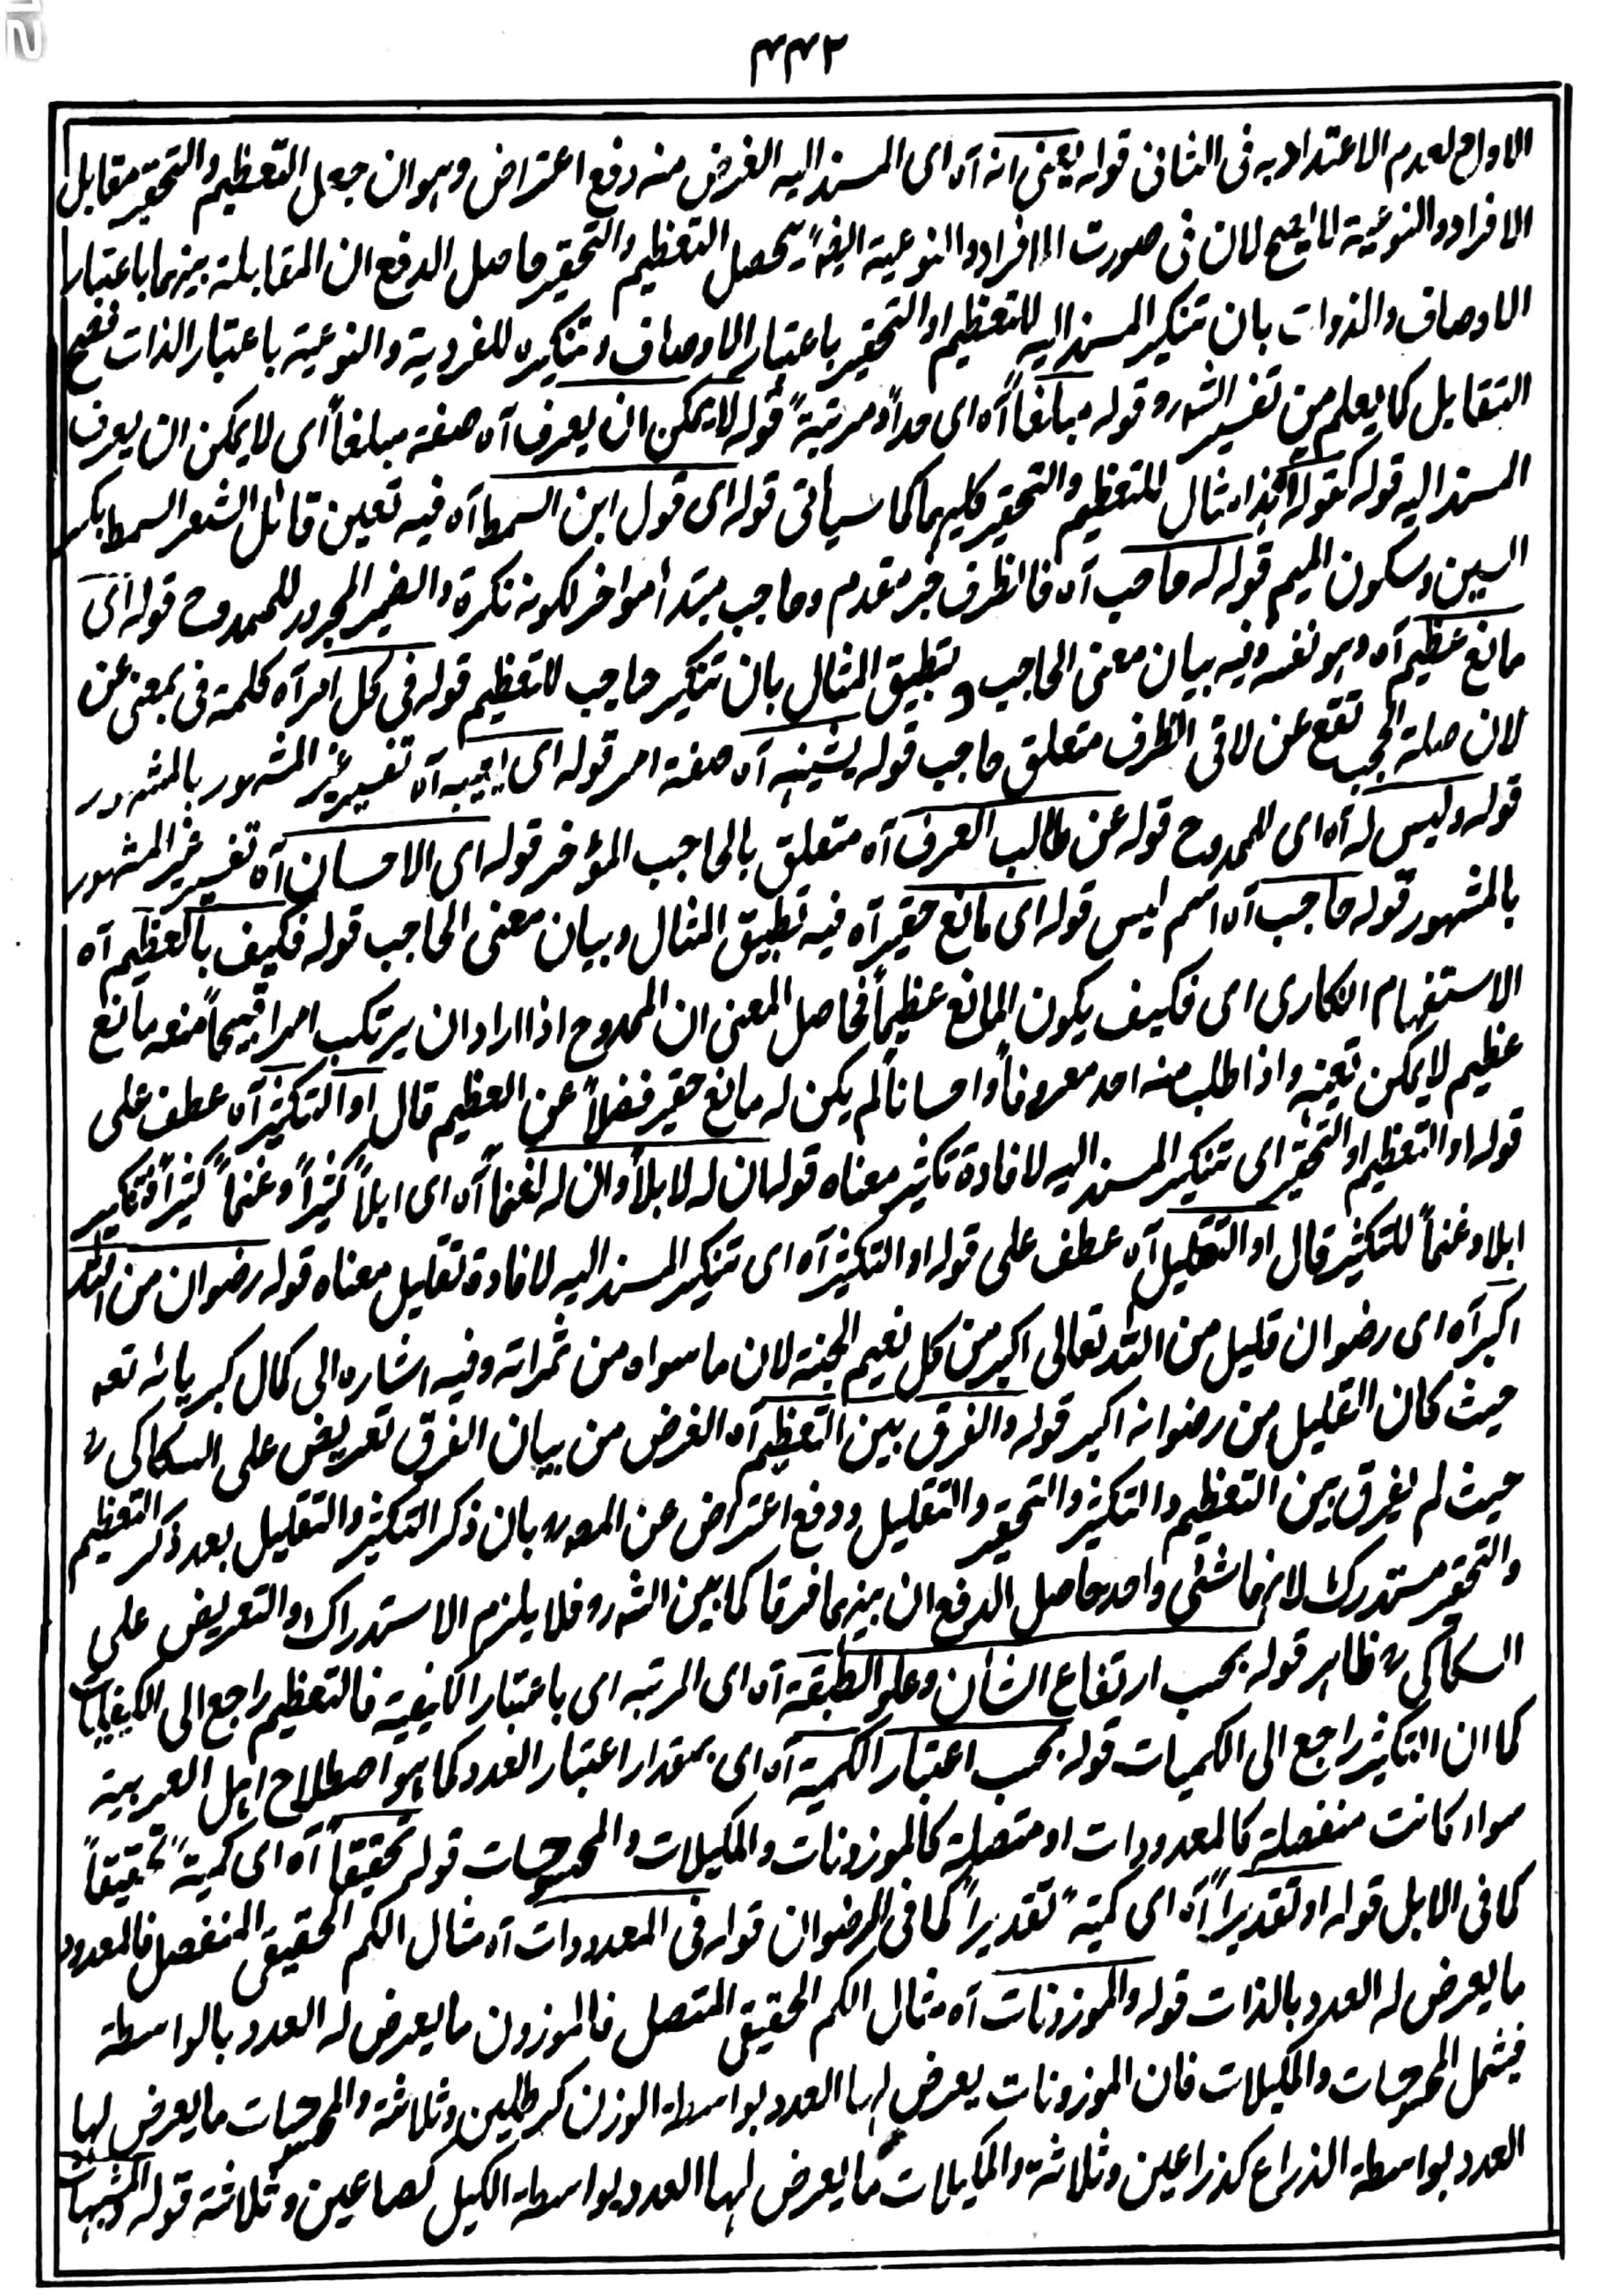 ۴۴۲
الاول لعدم الاعتداد به فى الثانى قوله يعنى انه آه اى المسند اليه الغرض منه دفع اعتراض وهو ان جعل التعظيم والتحقير مقابل
الافراد والنوعية لا يصح لان فى صورت الافراد والنوعية ايضًا يحصل التعظيم والتحقير حاصل الدفع ان المقابلة بينهما باعتبار
الاوصاف والذوات بان تنكير المسند اليه للتعظيم او التحقير باعتبار الاوصاف وتنكيره للفردية والنوعية باعتبار الذات فصح
التقابل كما يعلم من تفسير الشارح قوله مبلغاً آه اى حداً ومرتبةً قوله لا يمكن ان يعرف آه صفة مبلغاً اى لا يمكن ان يعرف
المسند اليه قوله كقوله آه هذا مثال للتعظيم والتحقير كليهما كما سياتى قوله اى قول ابن السمط آه فيه تعين قائل الشعر السمط بكسر
السين وسكون الميم قوله له حاجب آه فالظرف خبر مقدم وحاجب مبتدأ مؤاخر لكونه نكرة والضمير المجرور للممدوح قوله اى
مانع عظيم آه وهو نفسه وفيه بيان معنى الحاجب وتطبيق المثال بان تنكير حاجب للتعظيم قوله فى كل امر آه كلمة فى بمعنى عن
لان صلة الحجب تقع عن لا فى الظرف متعلق حاجب قوله يشينه آه صفة امر قوله اى يعيبه آه تفسير غير المشهور بالمشهور
قوله وليس له آه اى للممدوح قوله عن طالب العرف آه متعلق بالحاجب المؤخر قوله اى الاحسان آه تفسير غير المشهور
بالمشهور قوله حاجب آه اسم ليس قوله اى مانع حقير آه فيه تطبيق المثال وبيان معنى الحاجب قوله فكيف بالعظيم آه
الاستفهام انكارى اى فكيف يكون المانع عظيماً فحاصل المعنى ان الممدوح اذا اراد ان يرتكب امرا قبيحاً منعه مانع
عظيم لا يمكن تعينه واذا طلب منه احد معروفاً واحساناً لم يكن له مانع حقير فضلاً عن العظيم قال او التكثير آه عطف على
قوله او التعظيم او التحقير اى تنكير المسند اليه لافادة تكثير معناه قوله ان له لابلاً وان له لغنماً آه اى ابلاً كثيراً وغنماً كثيراً وتنكير
ابلا وغنماً للتكثير قال او التقليل آه عطف على قوله او التكثير آه اى تنكير المسند اليه لافادة تقليل معناه قوله رضوان من الله
اكبر آه اى رضوان قليل من الله تعالى اكبر من كل نعيم الجنة لان ما سواه من ثمراته وفيه اشاره الى كمال كبريائه تعه
حيث كان القليل من رضوانه اكبر قوله والفرق بين التعظيم آه الغرض من بيان الفرق تعريض على السكاكى رح
حيث لم يفرق بين التعظيم والتكثير والتحقير والتقليل ودفع اعتراض عن المصنف بان ذكر التكثير والتقليل بعد ذكر التعظيم
والتحقير مستدرك لانهما شئ واحد حاصل الدفع ان بينهما فرقا كما بين الشارح فلا يلزم الاستدراك والتعريض على
السكاكى رح ظاهر قوله بحسب ارتفاع الشان وعلو الطبقة آه اى المرتبه اى باعتبار الكيفية فالتعظيم راجع الى الكيفيات
كما ان التكثير راجع الى الكميات قوله بحسب اعتبار الكمية آه اى بمقدار اعتبار العدد كما هو اصطلاح اهل العربية
سواء كانت منفصلة كالمعدودات او متصلة كالموزونات والمكيلات والممسوحات قوله تحقيقاً آه اى كميةً تحقيقاً
كما فى الابل قوله او تقديراً آه اى كميةً تقديراً كما فى الرضوان قوله فى المعدودات آه مثال الكم الحقيقى المنفصل فالمعدود
ما يعرض له العدد بالذات قوله والموزونات آه مثال الكم الحقيقى المتصل فالموزون ما يعرض له العدد بالواسطة
فيشمل الممسوحات والمكيلات فان الموزونات يعرض لها العدد بواسطة الوزن كرطلين وثلاثة والممسوحات ما يعرض لها
العدد بواسطة الذراع كذراعين وثلاثة والمكيلات ما يعرض لها العدد بواسطة الكيل كصاعين وثلاثة قوله